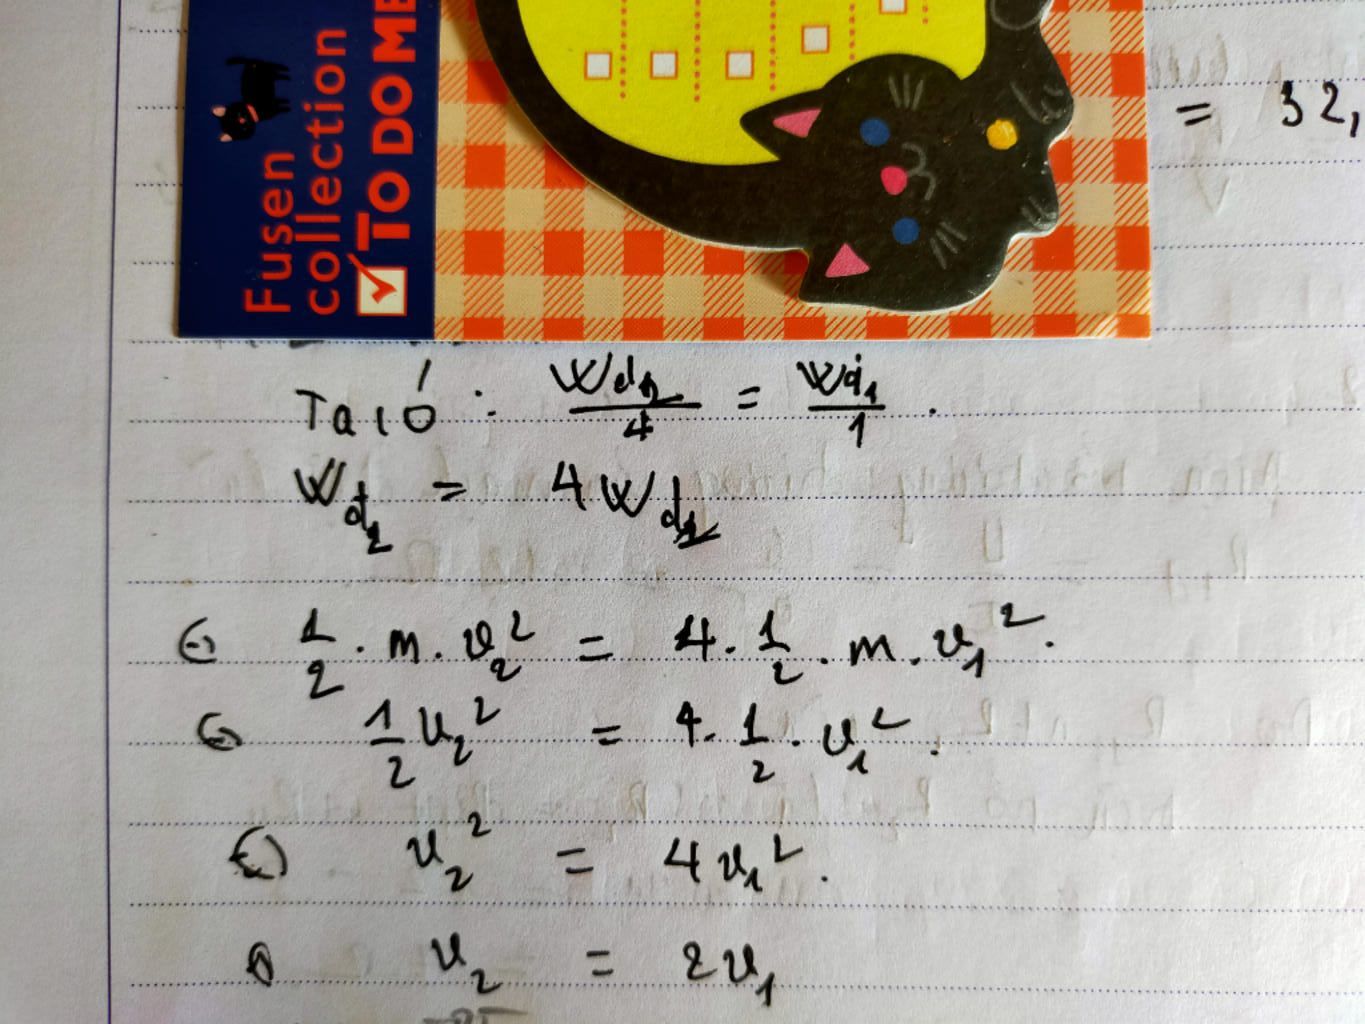 Fusen
collection
TO DO ME
= 32,
Ta có : Wđ2/4 = Wđ1/1 .
Wđ2 = 4 Wđ1
⇔ 1/2 . m . v2² = 4 . 1/2 . m . v1² .
⇔ 1/2 v2² = 4 . 1/2 . v1² .
⇔ v2² = 4 v1² .
⇔ v2 = 2 v1